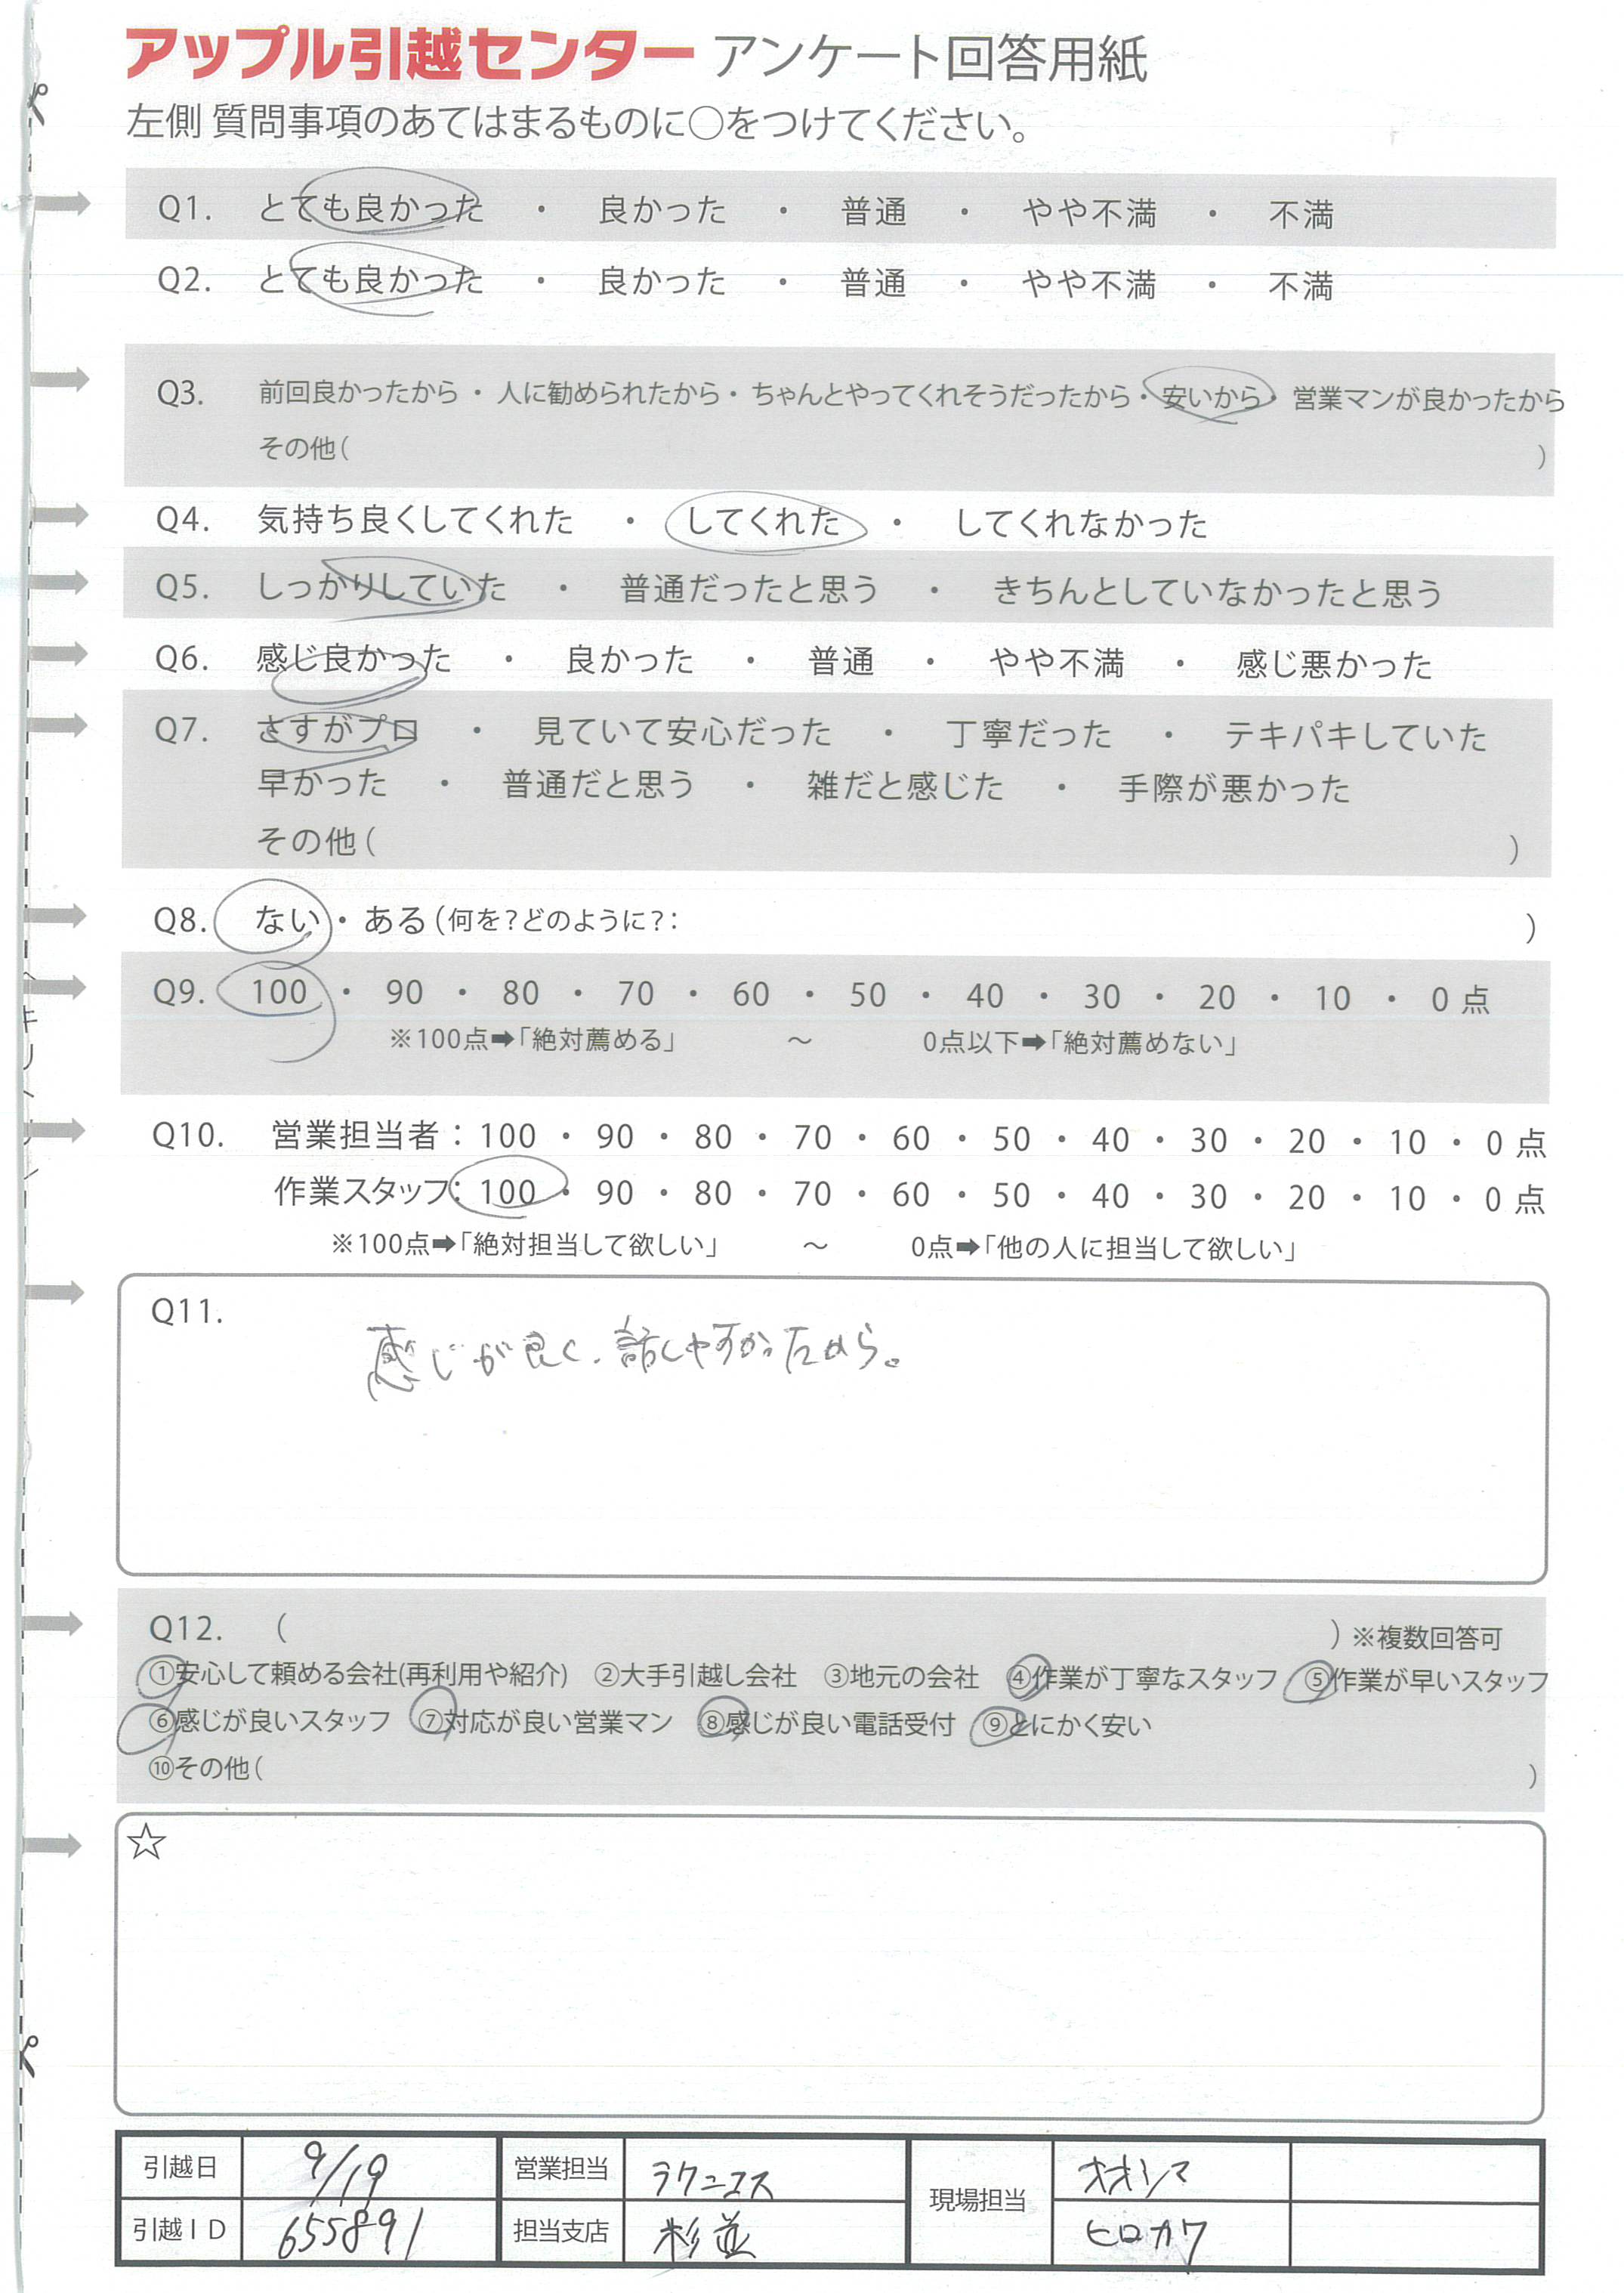 アップル引越センター アンケート回答用紙
左側 質問事項のあてはまるものに○をつけてください。
Q1. とても良かった ・ 良かった ・ 普通 ・ やや不満 ・ 不満
Q2. とても良かった ・ 良かった ・ 普通 ・ やや不満 ・ 不満
Q3. 前回良かったから ・ 人に勧められたから ・ ちゃんとやってくれそうだったから ・ 安いから ・ 営業マンが良かったから
その他( )
Q4. 気持ち良くしてくれた ・ してくれた ・ してくれなかった
Q5. しっかりしていた ・ 普通だったと思う ・ きちんとしていなかったと思う
Q6. 感じ良かった ・ 良かった ・ 普通 ・ やや不満 ・ 感じ悪かった
Q7. さすがプロ ・ 見ていて安心だった ・ 丁寧だった ・ テキパキしていた
早かった ・ 普通だと思う ・ 雑だと感じた ・ 手際が悪かった
その他( )
Q8. ない ・ ある(何を?どのように?: )
Q9. 100 ・ 90 ・ 80 ・ 70 ・ 60 ・ 50 ・ 40 ・ 30 ・ 20 ・ 10 ・ 0 点
※100点➡「絶対薦める」 ～ 0点以下➡「絶対薦めない」
Q10. 営業担当者 : 100 ・ 90 ・ 80 ・ 70 ・ 60 ・ 50 ・ 40 ・ 30 ・ 20 ・ 10 ・ 0 点
作業スタッフ: 100 ・ 90 ・ 80 ・ 70 ・ 60 ・ 50 ・ 40 ・ 30 ・ 20 ・ 10 ・ 0 点
※100点➡「絶対担当して欲しい」 ～ 0点➡「他の人に担当して欲しい」
Q11.
感じが良く、話しやすかったから。
Q12. ( ) ※複数回答可
①安心して頼める会社(再利用や紹介) ②大手引越し会社 ③地元の会社 ④作業が丁寧なスタッフ ⑤作業が早いスタッフ
⑥感じが良いスタッフ ⑦対応が良い営業マン ⑧感じが良い電話受付 ⑨とにかく安い
⑩その他( )
☆
引越日 9/19 営業担当 ラクニコス 現場担当 オオシマ
引越ID 655891 担当支店 杉並 ヒロカワ